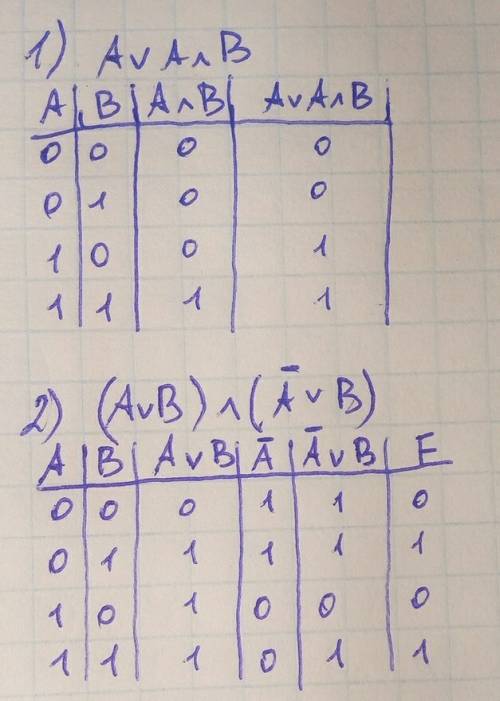 1) A∨A∧B
A B A∧B A∨A∧B
0 0 0 0
0 1 0 0
1 0 0 1
1 1 1 1
2) (A∨B)∧(Ā∨B)
A B A∨B Ā Ā∨B F
0 0 0 1 1 0
0 1 1 1 1 1
1 0 1 0 0 0
1 1 1 0 1 1